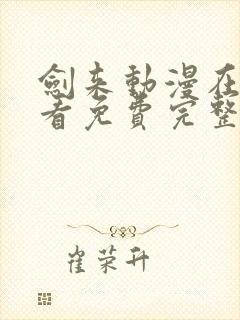 劍来動漫在
看免費完整
崔荣升